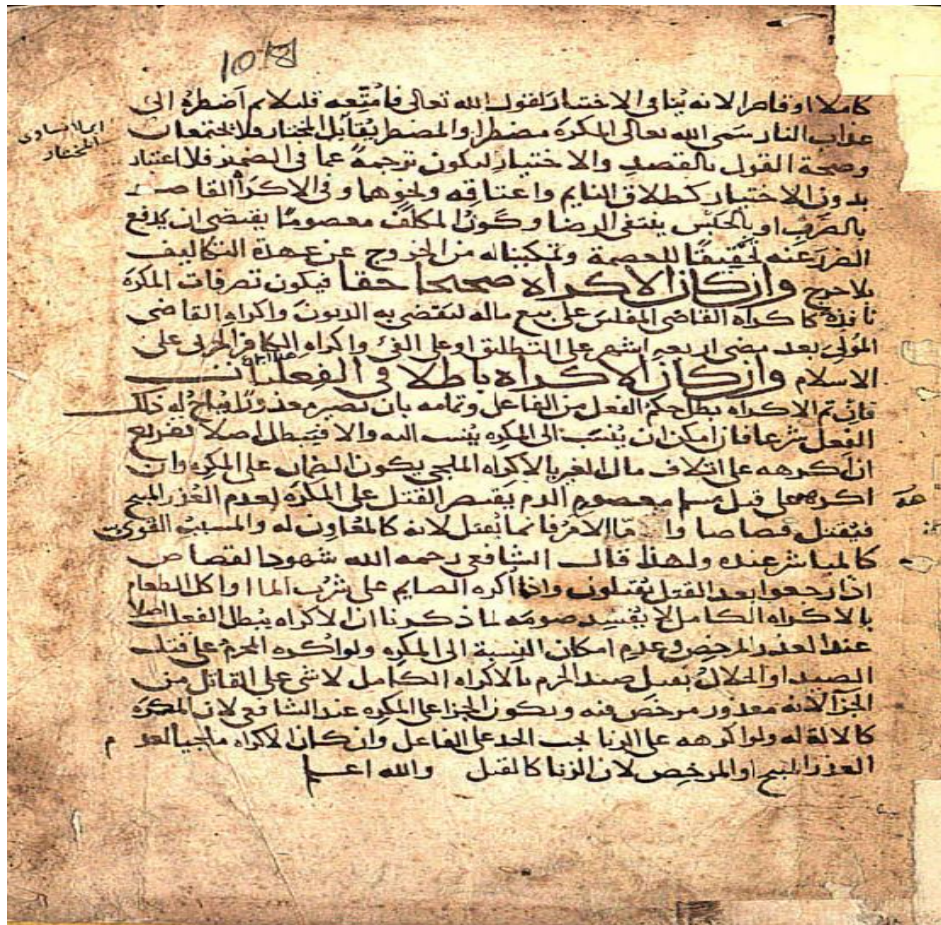 كاملا او قاصرا لانه ينافى الاختيار لقول الله تعالى فامتعه قليلا ثم اضطره الى
عذاب النار سمى الله تعالى المكره مضطرا والمضطر يقابل المختار فلا يجتمعان
وصحة القول بالقصد والاختيار ليكون ترجمة عما فى الضمير فلا اعتبار
بدون الاختيار كطلاق النايم واعتاقه ونحوهما وفى الاكراه القاصر
بالضرب او بالحبس ينتفى الرضا وكون المكلف معصوما يقتضى ان يدفع
الضرر عنه تحقيقا للعصمة وتمكينا له من الخروج عن عهدة التكاليف
بلا حرج وان كان الاكراه صحيحا حقا فيكون تصرفات المكره
نافذة كاكراه القاضى المفلس على بيع ماله لتقضى به الديون واكراه القاضى
المولى بعد مضى اربعة اشهر على التطليق او على الفئ واكراه الكافر الحربى على
الاسلام وان كان الاكراه باطلا فى الفعليات
فان تم الاكراه بطل حكم الفعل من الفاعل وتمامه بان تصير معذورا ويباح له ذلك
الفعل شرعا فان امكن ان ينسب الى المكره ينسب اليه والا فيبطل اصلا تفريع
ان اكرهه على اتلاف مال الغير بالاكراه الملجى يكون الضمان على المكره وان
اكرهه على قتل معصوم الدم يقتصر القتل على المكره لعدم العذر المبيح
فيقتل قصاصا واما الامر فانما يقتل لانه كالمعاون له والمسبب القوى
كالمباشر عنده ولهذا قال الشافعى رحمه الله شهود القصاص
اذا رجعوا بعد القتل يقتلون واذا اكره الصايم على شرب الماا او اكل الطعام
بالاكراه الكامل لا يفسد صومه لما ذكرنا ان الاكراه يبطل الفعل اصلا
عند العذر المرخص وعدم امكان النسبة الى المكره ولو اكره المحرم على قتل
الصيد او الحلال بقتل صيد الحرم بالاكراه الكامل لا شى على القاتل من
الجزا لانه معذور مرخص فيه ويكون الجزا على المكره عند الشافعى لان المكره
كالالة له ولو اكرهه على الزنا يجب الحد على الفاعل وان كان الاكراه ملجيا لعدم
العذر المبيح او المرخص لان الزنا كالقتل والله اعلم